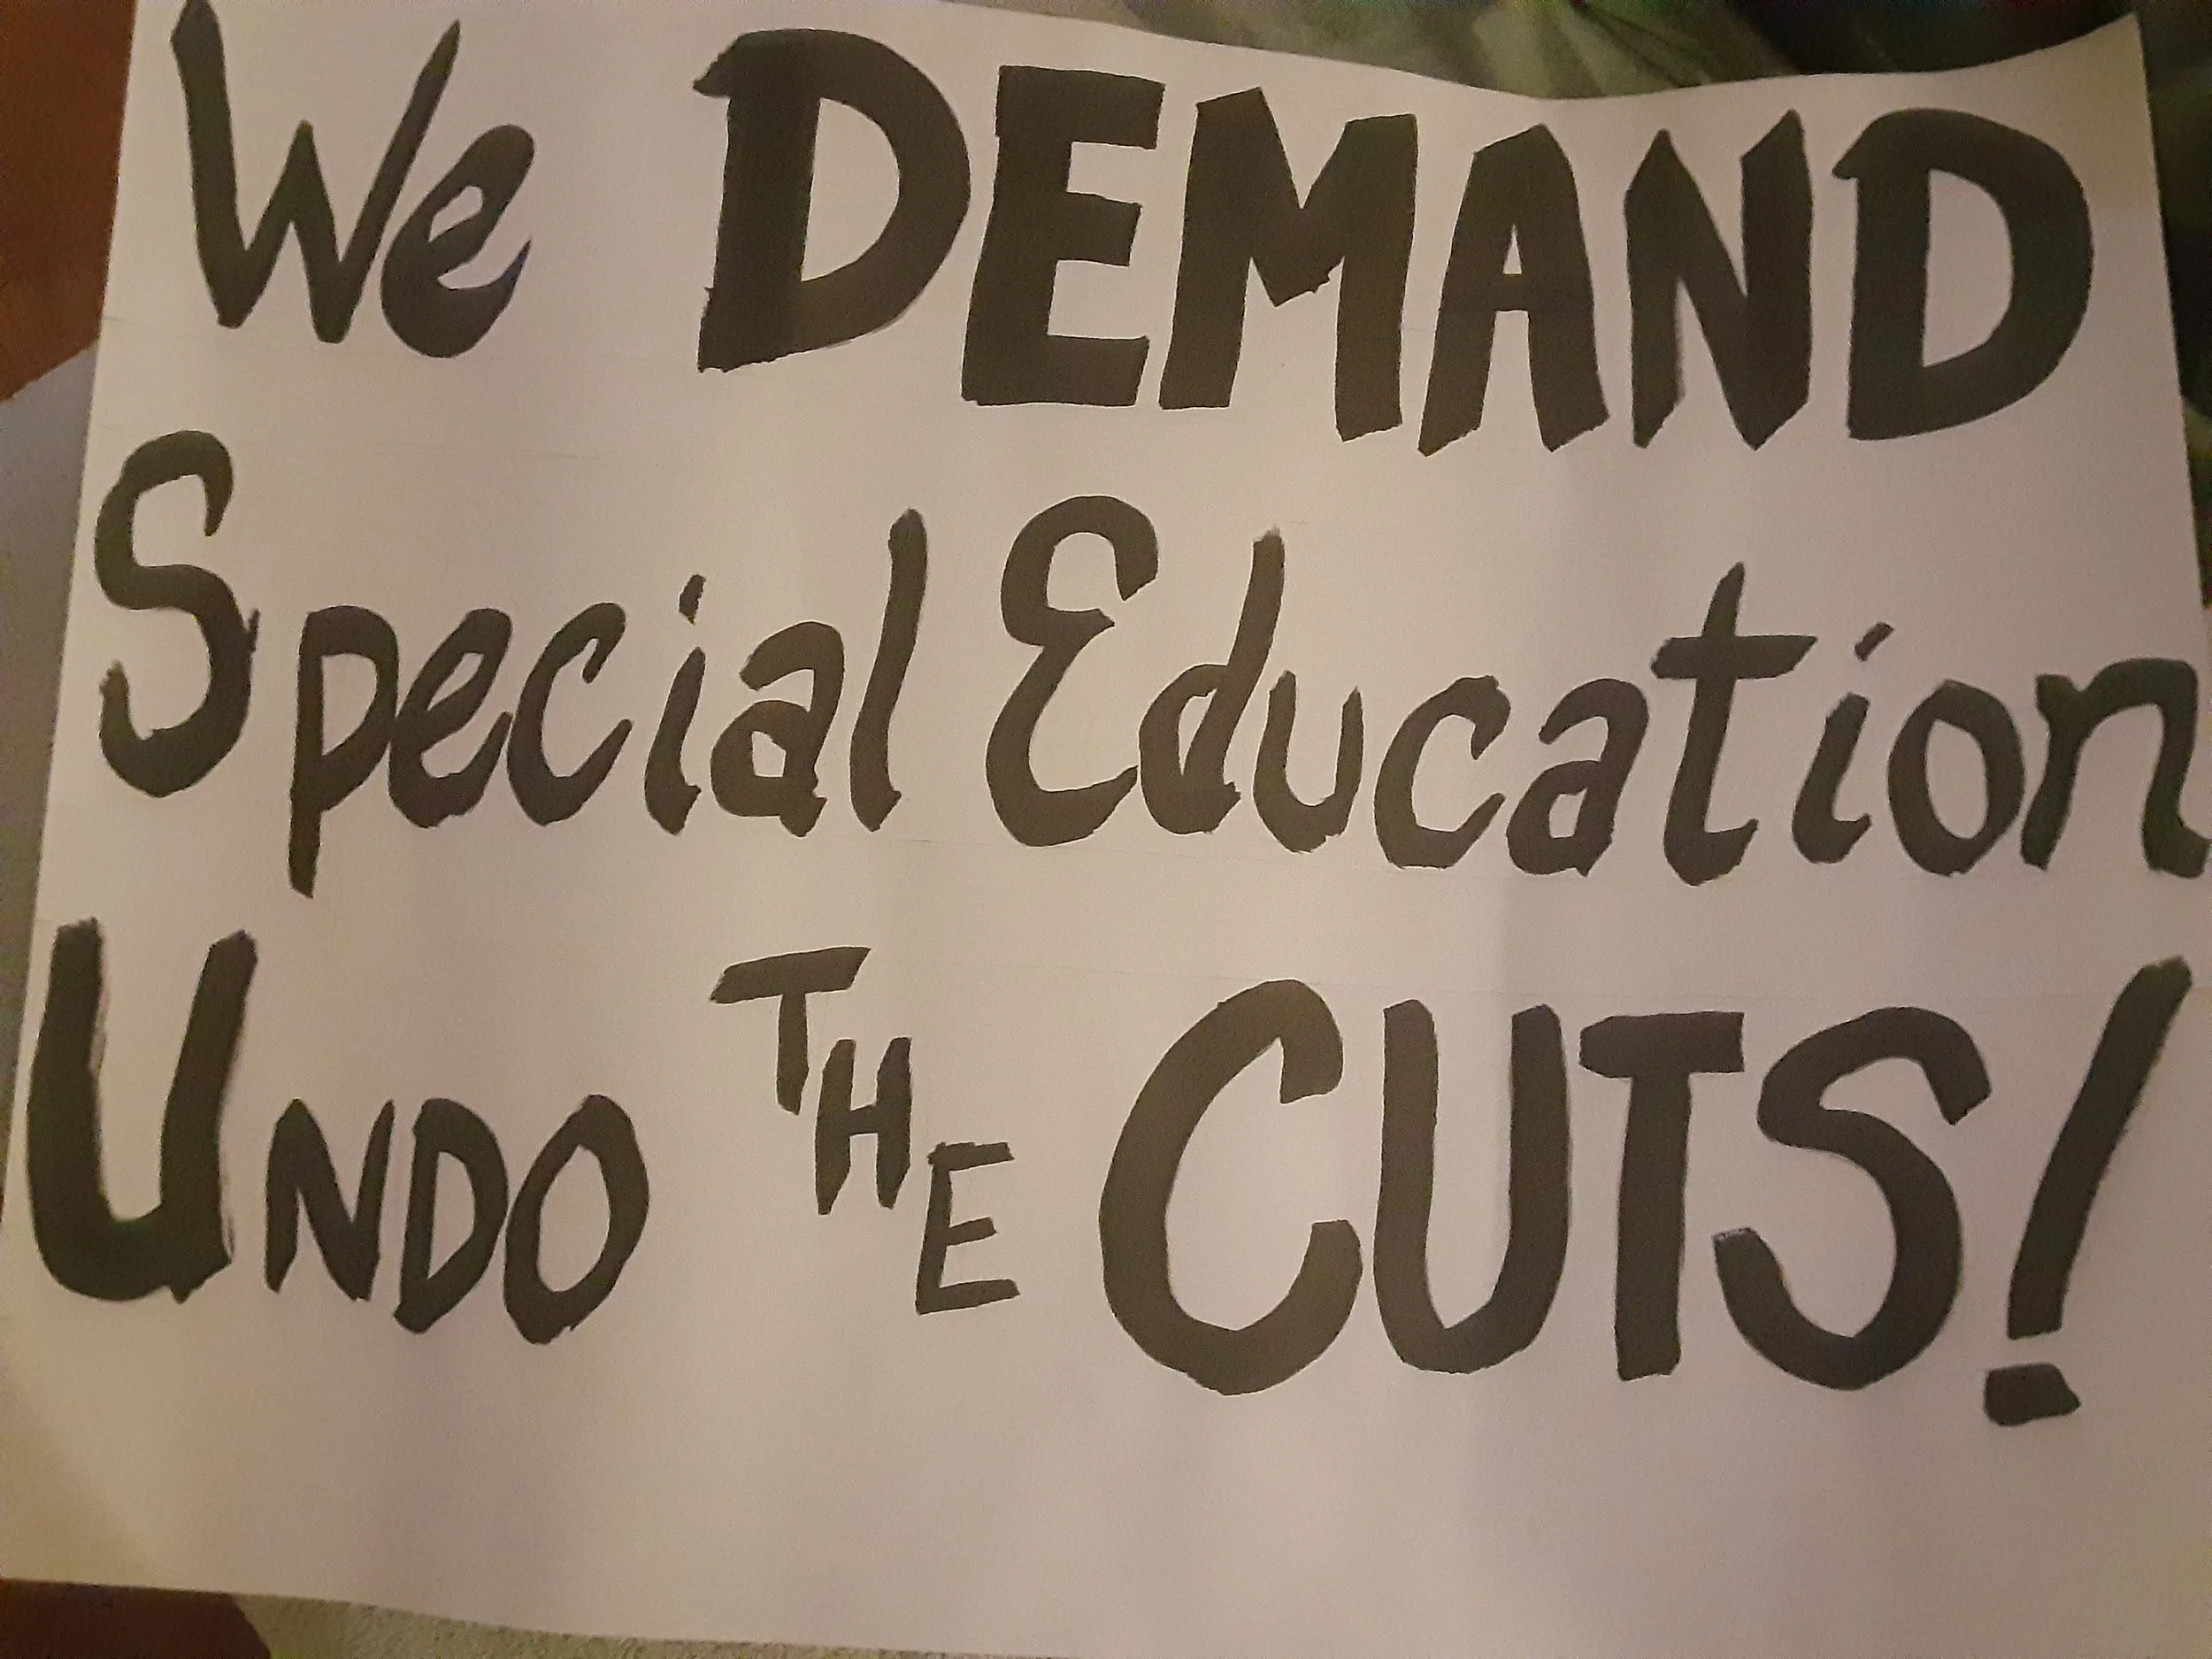 We DEMAND
Special Education
UNDO THE CUTS!